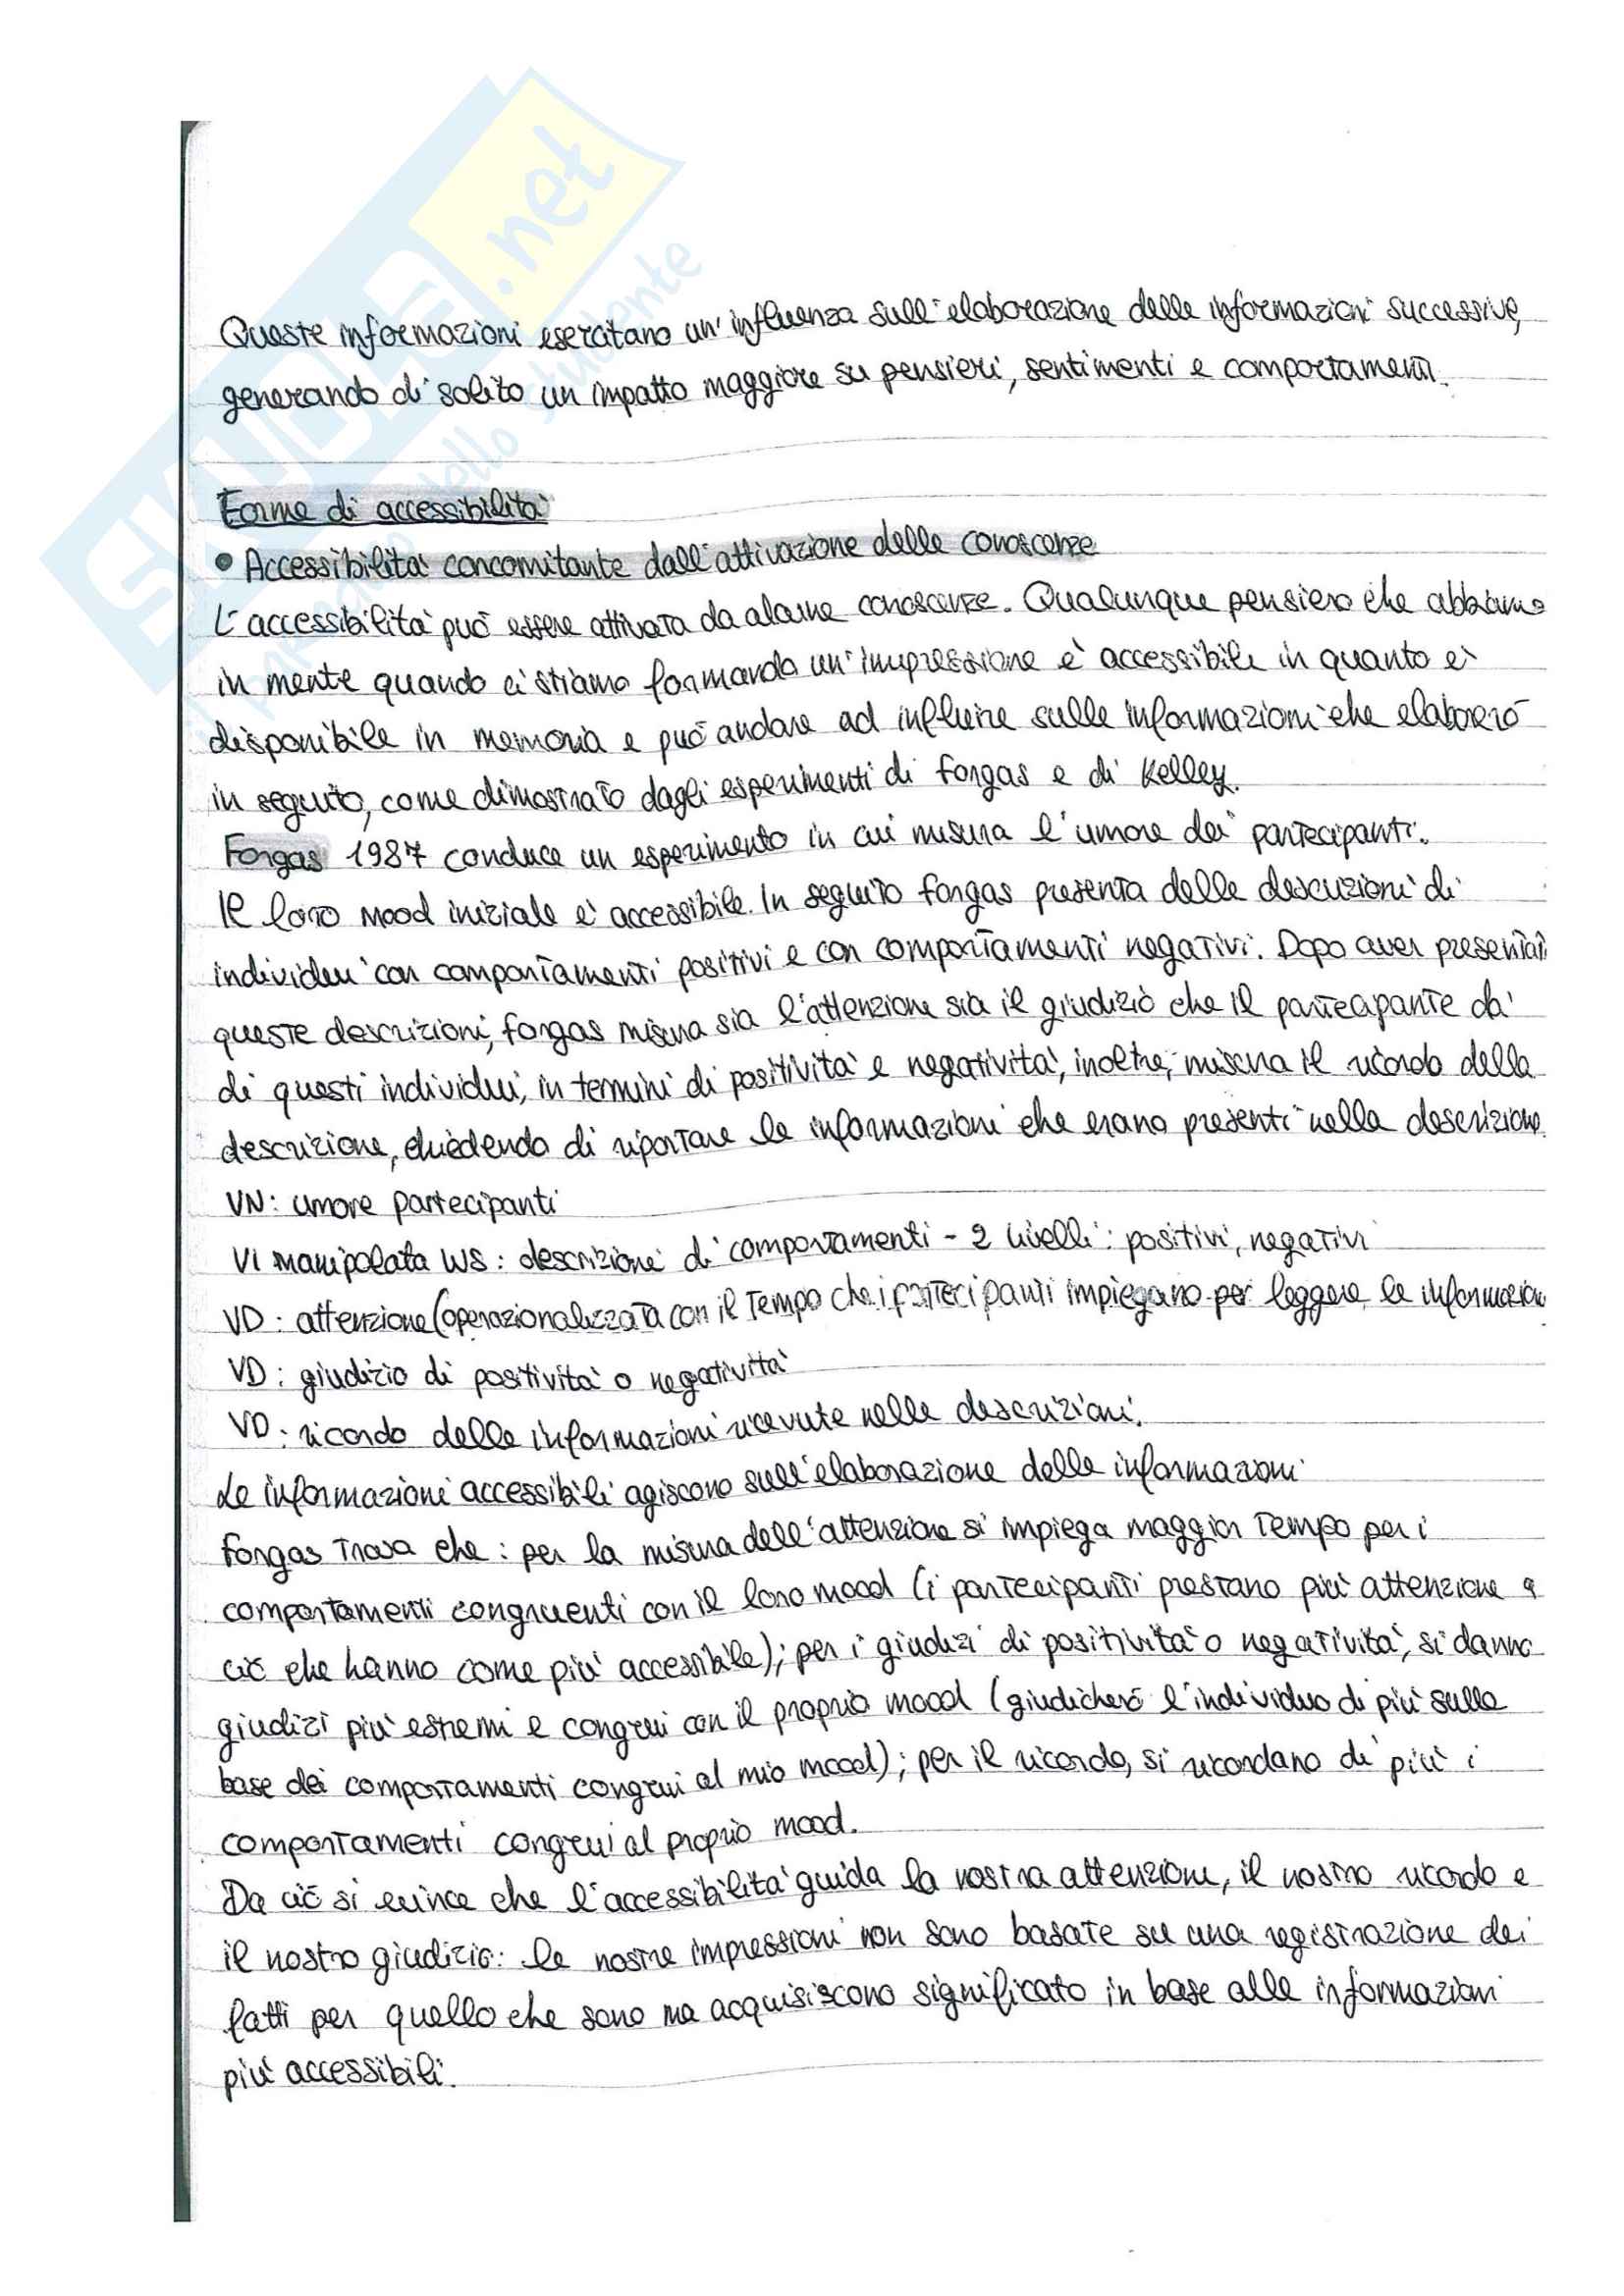 SKUOLA.net
il paradiso dello studente
Queste informazioni esercitano un'influenza sull'elaborazione delle informazioni successive,
generando di solito un impatto maggiore su pensieri, sentimenti e comportamenti.
Forme di accessibilità
• Accessibilità concomitante dall'attivazione delle conoscenze
L'accessibilità può essere attivata da alcune conoscenze. Qualunque pensiero che abbiamo
in mente quando ci stiamo formando un'impressione è accessibile in quanto è
disponibile in memoria e può andare ad influire sulle informazioni che elaborerò
in seguito, come dimostrato dagli esperimenti di Forgas e di Kelley.
Forgas 1987 conduce un esperimento in cui misura l'umore dei partecipanti.
Il loro mood iniziale è accessibile. In seguito Forgas presenta delle descrizioni di
individui con comportamenti positivi e con comportamenti negativi. Dopo aver presentati
queste descrizioni, Forgas misura sia l'attenzione sia il giudizio che il partecipante dà
di questi individui, in termini di positività e negatività, inoltre, misura il ricordo della
descrizione, chiedendo di riportare le informazioni che erano presenti nella descrizione.
VN: umore partecipanti
VI manipolata WS: descrizione di comportamenti - 2 livelli: positivi, negativi
VD: attenzione (operazionalizzata con il tempo che i partecipanti impiegano per leggere le informazion
VD: giudizio di positività o negatività
VD: ricordo delle informazioni ricevute nelle descrizioni.
Le informazioni accessibili agiscono sull'elaborazione delle informazioni
Forgas trova che: per la misura dell'attenzione si impiega maggior tempo per i
comportamenti congruenti con il loro mood (i partecipanti prestano più attenzione a
ciò che hanno come più accessibile); per i giudizi di positività o negatività, si danno
giudizi più estremi e congrui con il proprio mood (giudicherò l'individuo di più sulla
base dei comportamenti congrui al mio mood); per il ricordo, si ricordano di più i
comportamenti congrui al proprio mood.
Da ciò si evince che l'accessibilità guida la nostra attenzione, il nostro ricordo e
il nostro giudizio: le nostre impressioni non sono basate su una registrazione dei
fatti per quello che sono ma acquisiscono significato in base alle informazioni
più accessibili.